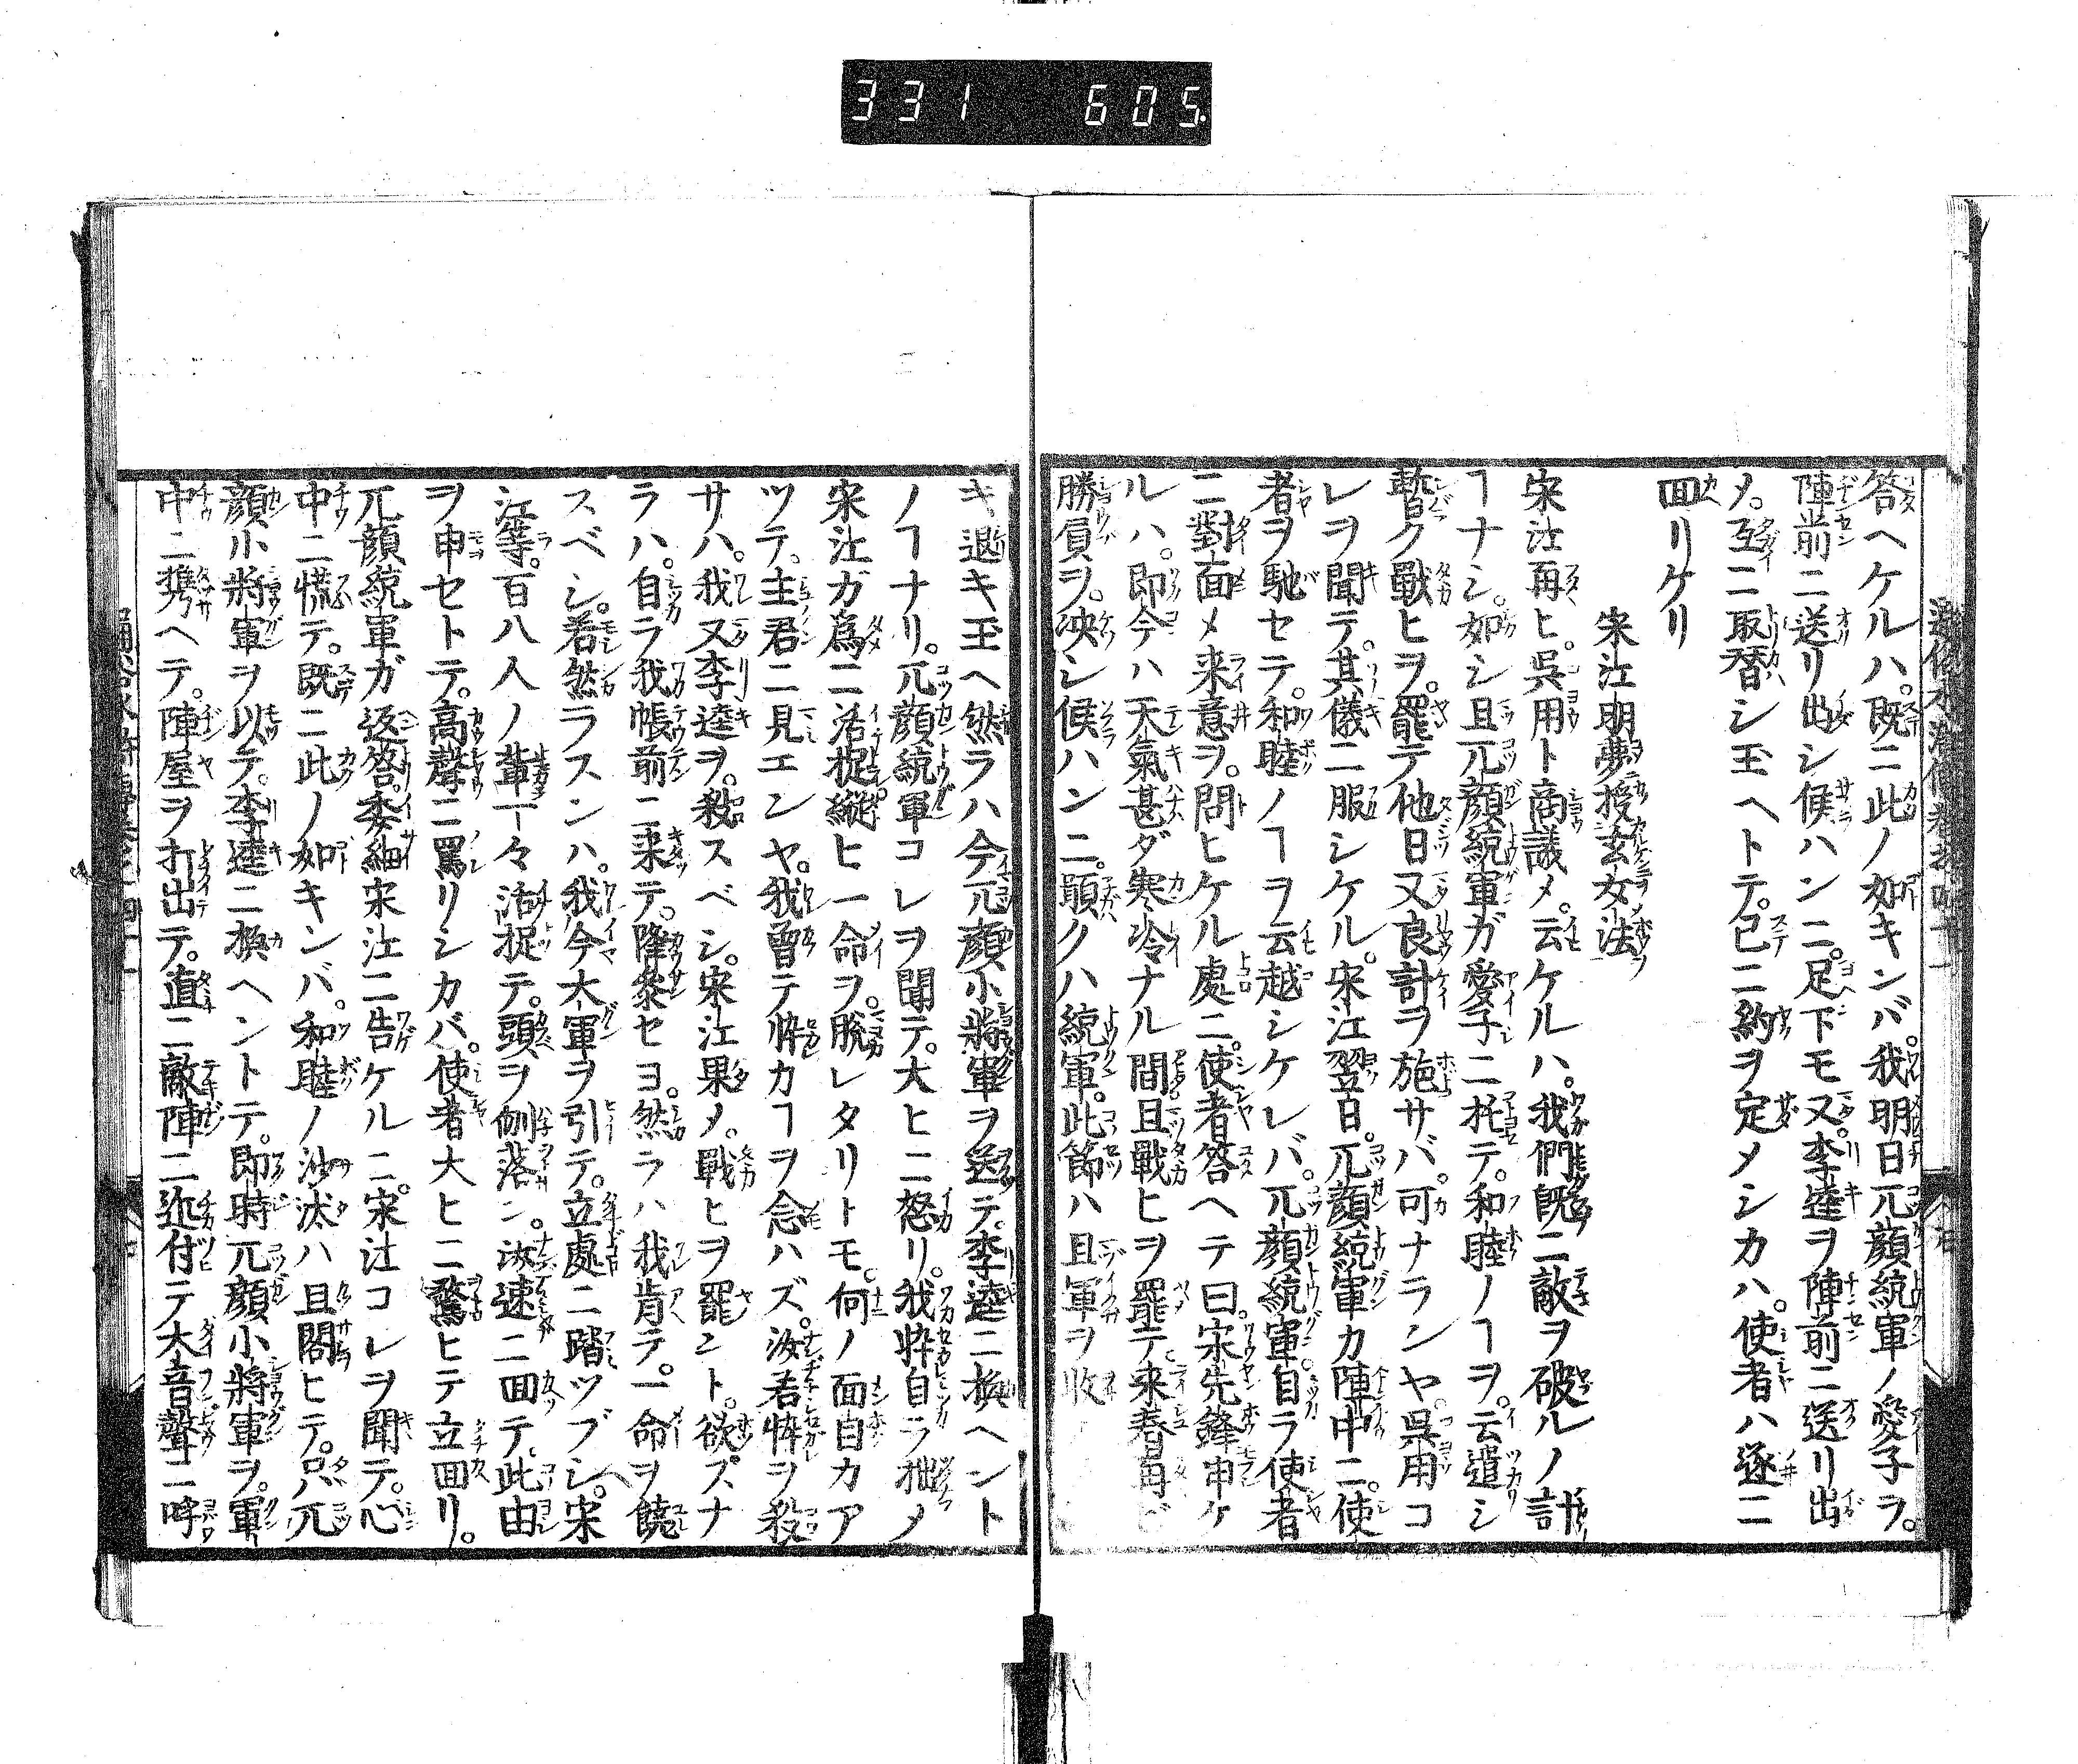 331 605.
答ヘケルハ。既ニ此ノ如キンバ。我明日兀顔統軍ノ愛子ヲ。
陣前ニ送リ出シ候ハンニ。足下モ又。李逵ヲ陣前ニ送リ出
メ。互ニ取替シ玉ヘトテ。已ニ約ヲ定メシカハ。使者ハ逐ニ
回リケリ
宋江明夢授玄女法
宋江再ヒ。呉用ト商議メ。云ケルハ。我們既ニ敵ヲ破ルノ計
ヿナシ。如シ且兀顔統軍ガ愛子ニ托テ。和睦ノヿヲ。云遣シ
暫ク戰ヒヲ。罷テ他日又良計ヲ施サバ。可ナランヤ。呉用コ
レヲ聞テ。其儀ニ服シケル。宋江翌日。兀顔統軍カ陣中ニ。使
者ヲ馳セテ。和睦ノヿヲ云越シケレバ。兀顔統軍自ラ使者
ニ對面メ来意ヲ。問ヒケル處ニ。使者答ヘテ曰。宋先鋒申ケ
ルハ。即今ハ天氣甚ダ寒冷ナル間且戰ヒヲ罷テ来春
勝負ヲ。决シ候ハンニ。願クハ統軍。此節ハ且軍ヲ收
キ退キ玉ヘ然ラハ今兀顔小將軍ヲ送テ。李逵ニ換ヘント
ノヿナリ。兀顔統軍コレヲ聞テ。大ヒニ怒リ。我悴自ラ拙メ
宋江ガ為ニ活捉縱ヒ一命ヲ。脱レタリトモ。何ノ面目カア
ツテ。主君ニ見エンヤ。我曽テ悴カヿヲ念ハズ。汝若悴ヲ殺
サハ。我又李逵ヲ。殺スベシ。宋江果メ。戰ヒヲ罷ント。欲スナ
ラハ。自ラ我帳前ニ来テ。降参セヨ。然ラハ我肯テ。一命ヲ饒
スベシ。若然ラスンハ。我今大軍ヲ引テ。立處ニ踏ツブシ。宋
江等。百八人ノ輩一々活捉テ。頭ヲ刎落ン。汝速ニ回テ。此由
ヲ申セトテ。高聲ニ罵リシカバ。使者大ヒニ驚ヒテ立回リ。
兀顔統軍ガ返答。委細宋江ニ告ケルニ。宋江コレヲ聞テ。心
中ニ慌テ。既ニ此ノ如キンバ。和睦ノ沙汰ハ且閣ヒテ。只兀
顔小將軍ヲ以テ。李逵ニ換ヘントテ。即時兀顔小將軍ヲ。軍
中ニ携ヘテ。陣屋ヲ打出テ。直ニ敵陣ニ近付テ大音聲ニ呼